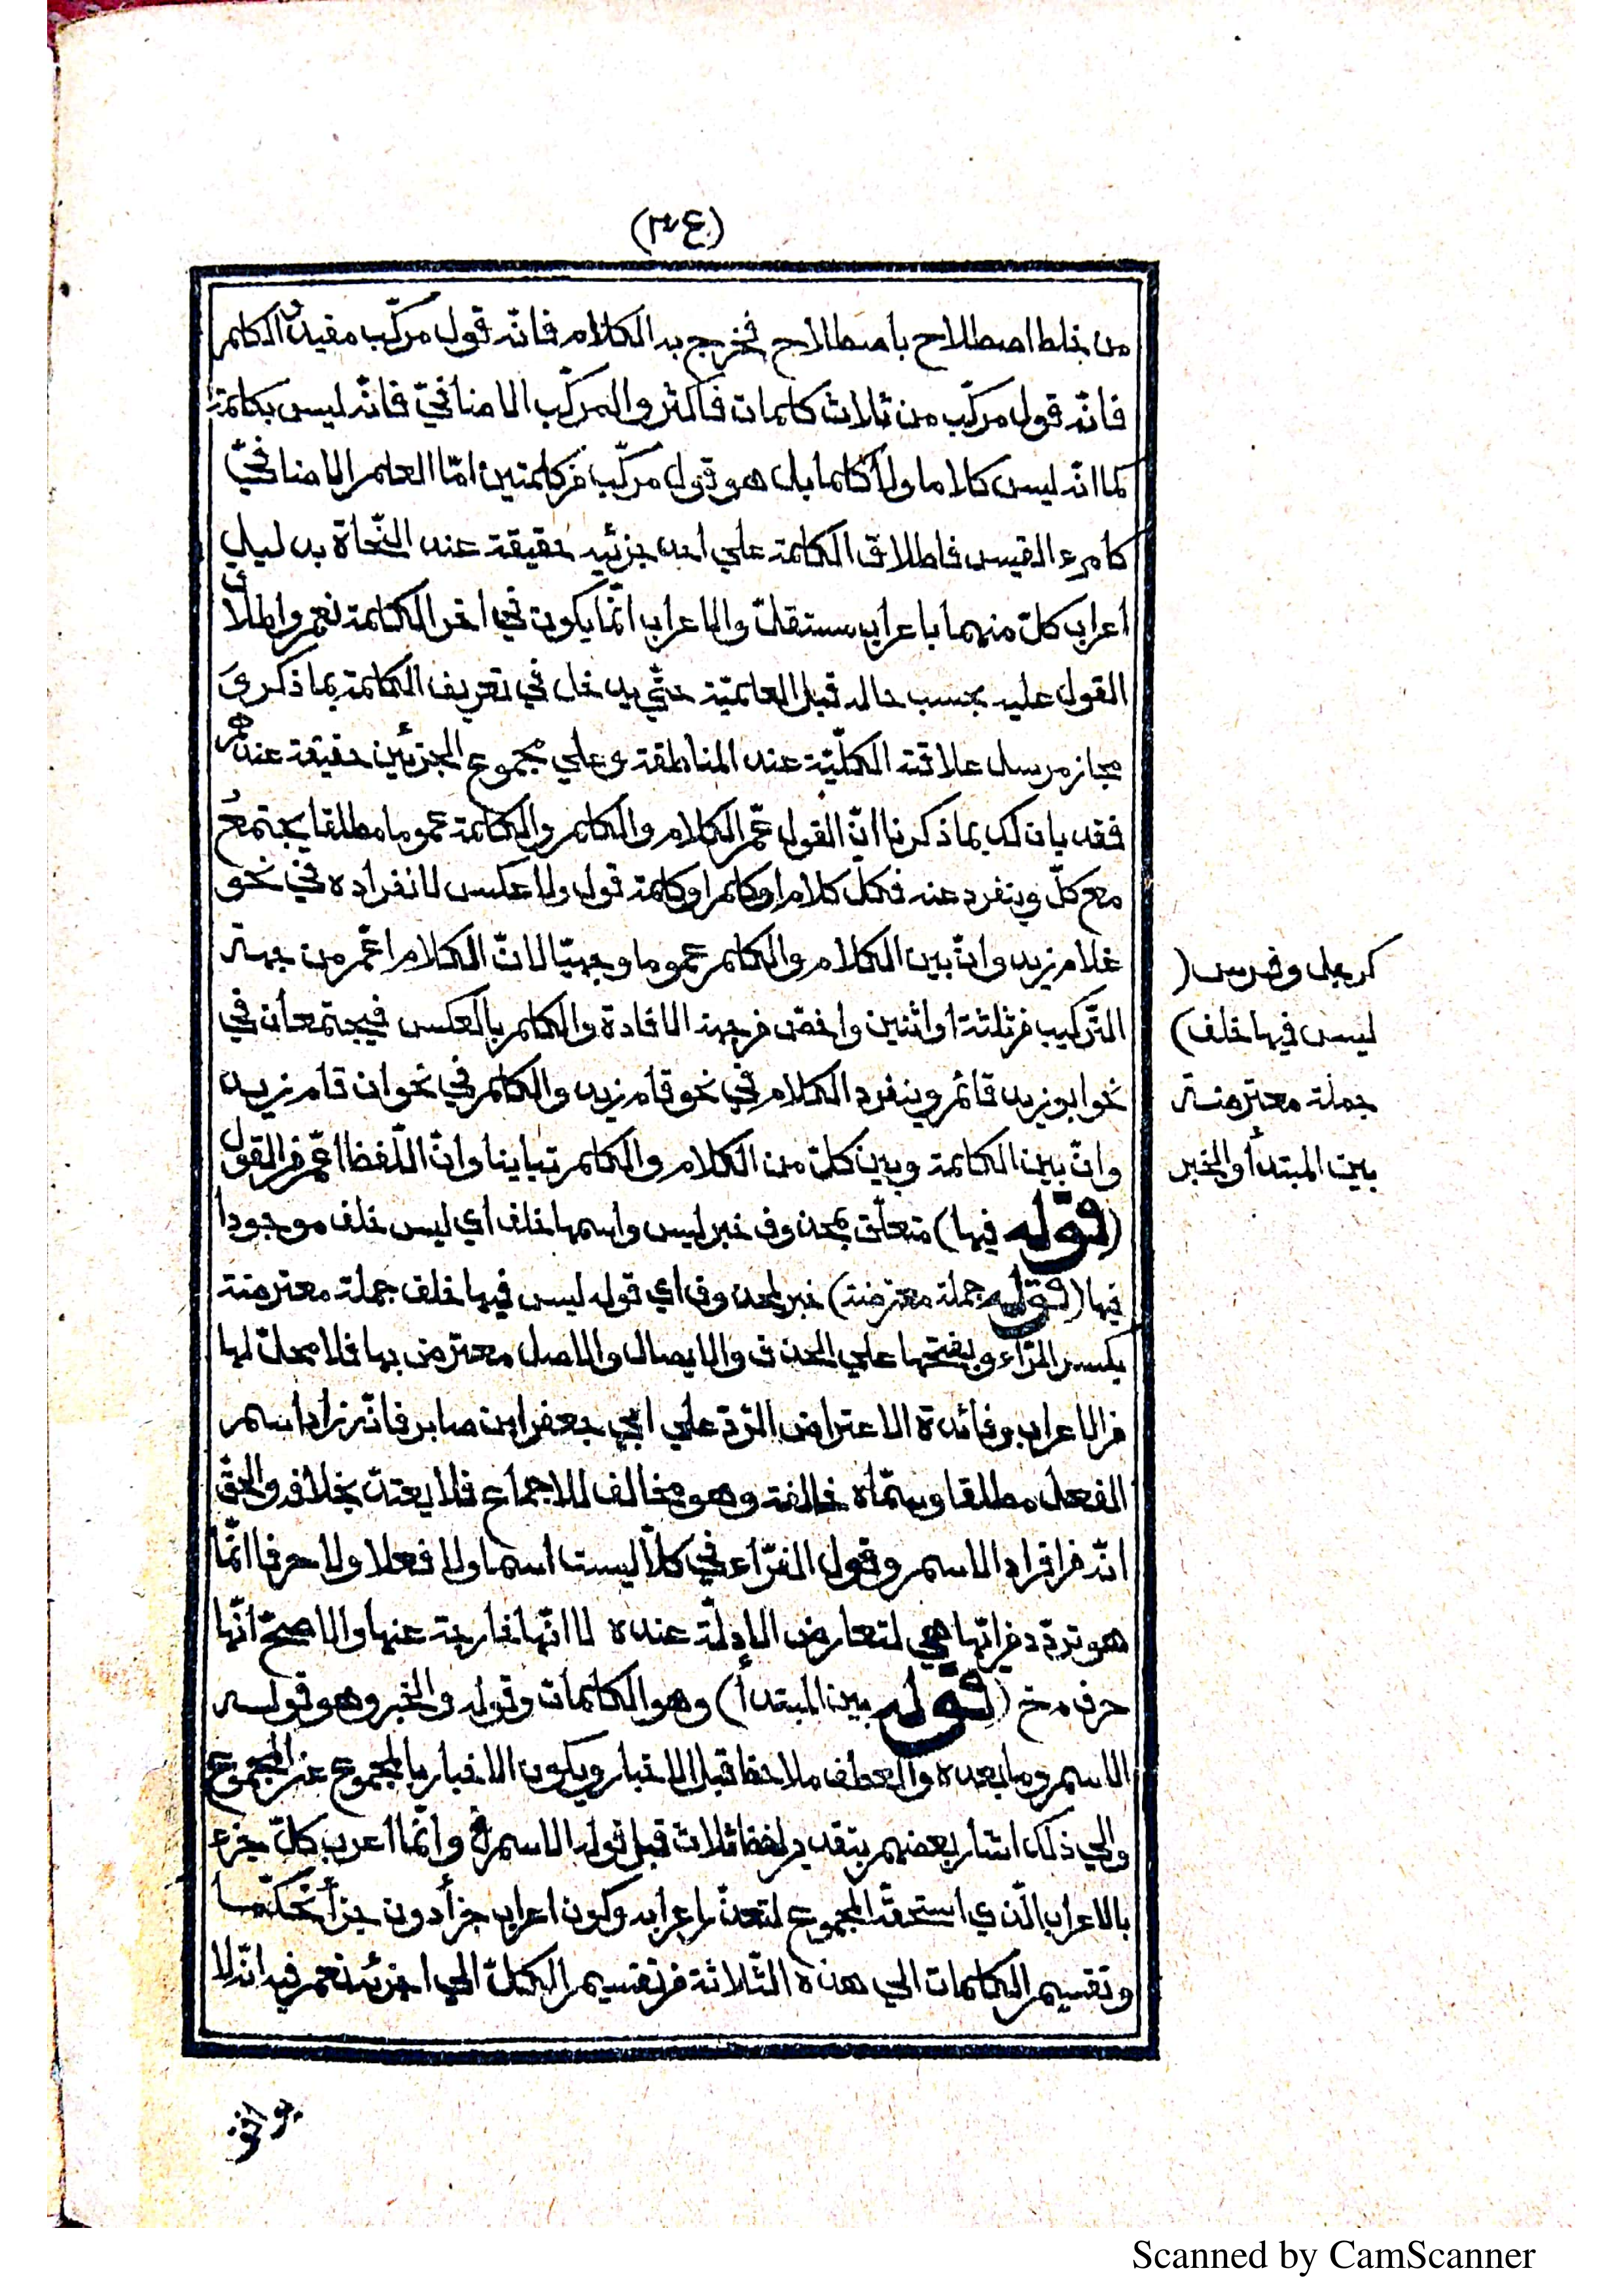 (٣٤)
من خلط اصطلاح باصطلاح فخرج به الكلام فانّه قول مركّب مفيد والكلم
فانّه قول مركّب من ثلاث كلمات فاكثر والمركّب الاضافيّ فانّه ليس بكلمة
كما انّه ليس كلاما ولا كلما بل هو قول مركّب من كلمتين امّا العلم الاضافيّ
كامرء القيس فاطلاق الكلمة علي احد جزئيه حقيقة عند النّحاة بدليل
اعراب كلّ منهما باعراب مستقلّ والاعراب انّما يكون في اخر الكلمة نعم واطلاق
القول عليه بحسب حاله قبل العلميّة حتّي يدخل في تعريف الكلمة بما ذكر
مجاز مرسل علاقته الكلّيّة عند المناطقة وعلي مجموع الجزئين حقيقة عندهم
فقد بان لك بما ذكرنا انّ القول عمّ الكلام والكلم والكلمة عموما مطلقا يجتمع
مع كلّ وينفرد عنه فكلّ كلام او كلم او كلمة قول ولا عكس لانفراده في نحو
غلام زيد وانّ بين الكلام والكلم عموما وجهيّا لانّ الكلام اعمّ من جهة
التّركيب من ثلثة او اثنين واخصّ من جهة الافادة والكلم بالعكس فيجتمعان في
نحو ابو زيد قائم وينفرد الكلام في نحو قام زيد والكلم في نحو ان قام زيد
وانّ بين الكلمة وبين كلّ من الكلام والكلم تباينا وانّ اللّفظ اعمّ من القول
(قوله فيها) متعلّق بمحذوف خبر ليس واسمها خلف أي ليس خلف موجودا
فيها (قوله جملة معترضة) خبر لمحذوف اي قوله ليس فيها خلف جملة معترضة
بكسر الرّاء وبفتحها علي الحذف والايصال والاصل معترض بها فلا محلّ لها
من الاعراب وفائدة الاعتراض الرّد علي ابي جعفر ابن صابر فانّه زاد اسم
الفعل مطلقا وسمّاه خالفة وهو مخالف للاجماع فلا يعتدّ بخلافه والحقّ
انّه من افراد الاسم وقول الفرّاء في كلاّ ليست اسما ولا فعلا ولا حرفا انّما
هو تردّد من انّها هي لتعارض الادلّة عنده لا انّها خارجة عنها والاصحّ انّها
حرف مخ (قوله بين المبتدأ) وهو الكلمات وقوله والخبر وهو قوله
الاسم وما بعده والعطف ملاحظ قبل الاخبار ويكون الاخبار بالمجموع عن المجموع
والي ذلك اشار بعضهم بتقدير لفظ ثلاث قبل قوله الاسم الخ وانّما اعرب كلّ جزء
بالاعراب الّذي استحقّه المجموع لتعذّر اعرابه وكون اعراب جزأ دون جزأ تحكّما
وتقسيم الكلمات الي هذه الثّلاثة من تقسيم الكلّ الي اجزئه نعم فيه انّه لا
كرجل وفرس (
ليس فيها خلف)
جملة معترضة
بين المبتدأ والخبر
Scanned by CamScanner